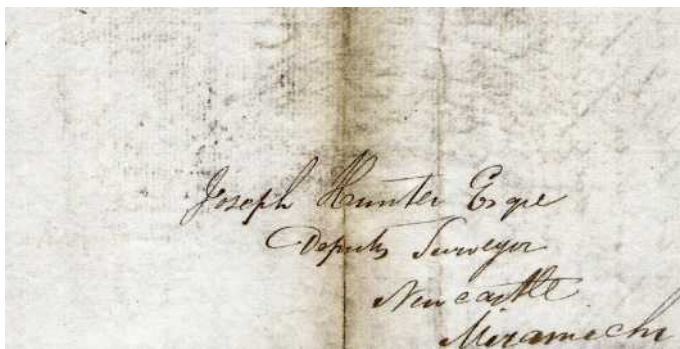 Joseph Hunter Esqre
Deputy Surveyor
Newcastle
Miramechi